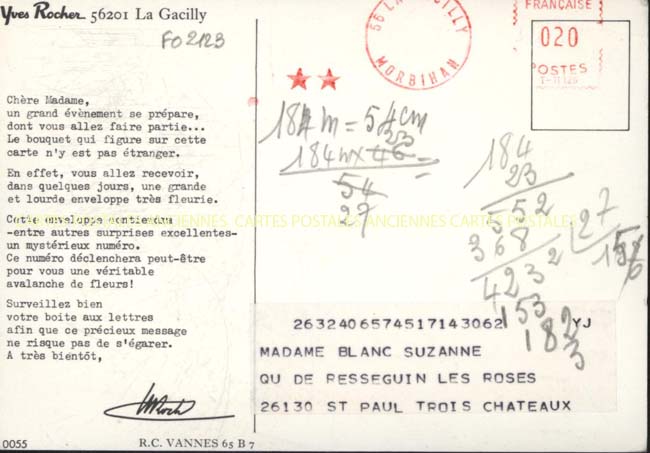 Yves Rocher 56201 La Gacilly
FO 2123
56 LA GACILLY
MORBIHAN
FRANÇAISE
020
POSTES
Chère Madame,
un grand évènement se prépare,
dont vous allez faire partie...
Le bouquet qui figure sur cette
carte n'y est pas étranger.
En effet, vous allez recevoir,
dans quelques jours, une grande
et lourde enveloppe très fleurie.
Cette enveloppe contiendra
-entre autres surprises excellentes-
un mystérieux numéro.
Ce numéro déclenchera peut-être
pour vous une véritable
avalanche de fleurs!
Surveillez bien
votre boite aux lettres
afin que ce précieux message
ne risque pas de s'égarer.
A très bientôt,
0055
R.C. VANNES 65 B 7
CARTES POSTALES ANCIENNES. CARTES POSTALES
184 m = 54 cm
23
184 m x 46 =
54
27
184
23
552
368
4232
27
153
182
3
26324065745171430 62 YJ
MADAME BLANC SUZANNE
QU DE RESSEGUIN LES ROSES
26130 ST PAUL TROIS CHATEAUX